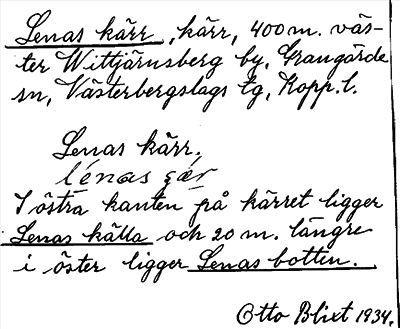 Lenas kärr, kärr, 400 m. väs-
ter Wittjärnsberg by, Grangärde
sn, Västerbergslags tg, Kopp. l.
Lenas kärr.
lénas çær
I östra kanten på kärret ligger
Lenas källa och 20 m. längre
i öster ligger Lenas botten.
Otto Blixt 1934.